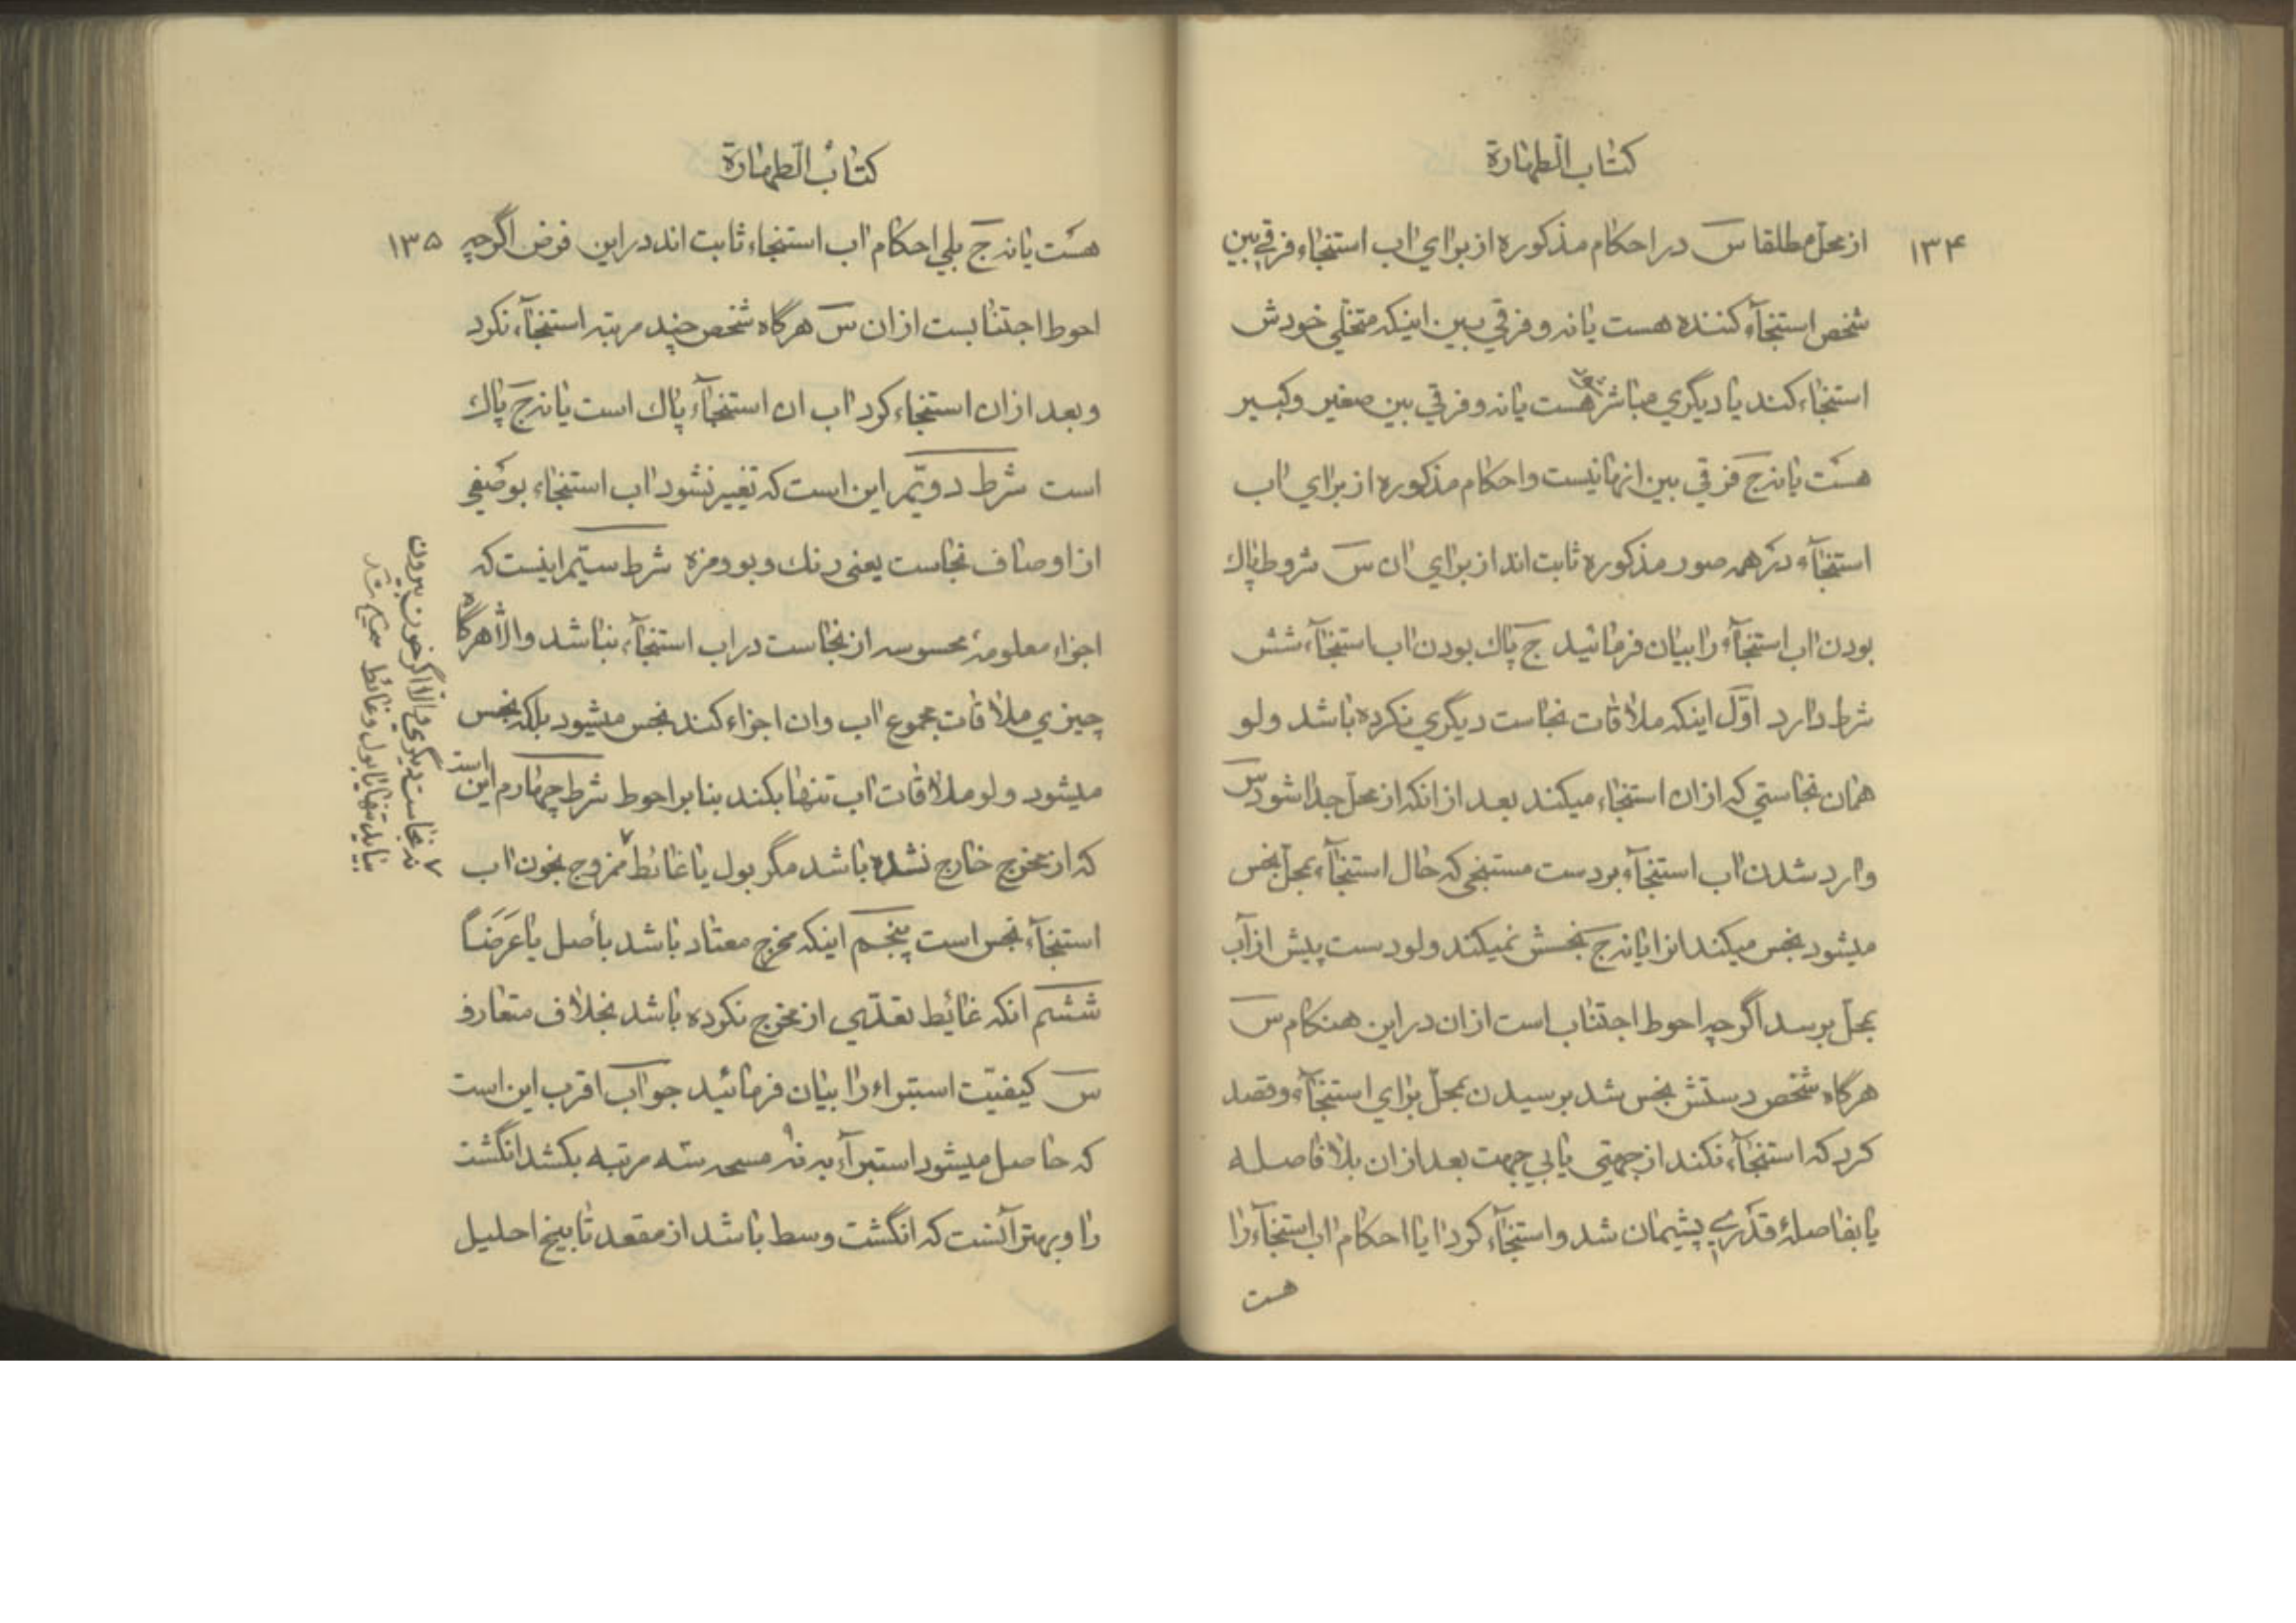 کتاب الطهارة
۱۳۴
از محل مطلقا س در احکام مذکوره از برای اب استنجاء فرقی بین
شخص استنجآء کننده هست یا نه و فرقی بین اینکه متخلی خودش
استنجاء کند یا دیگری مباشر هست یا نه و فرقی بین صغیر و کبیر
هست یا نه ج فرقی بین انها نیست و احکام مذکوره از برای اب
استنجآء در همه صور مذکوره ثابت اند از برای ان س شروط پاك
بودن اب استنجآء را بیان فرمائید ج پاك بودن اب استنجآء شش
شرط دارد اوّل اینکه ملاقات نجاست دیگری نکرده باشد ولو
همان نجاستی که ازان استنجاء میکند بعد از انکه از محل جدا شود س
وارد شدن اب استنجآء بر دست مستنجی که حال استنجآء بمحل نجس
میشود نجس میکند انرا یا نه ج نجسش نمیکند ولو دست پیش از آب
بمحل برسد اگرچه احوط اجتناب است ازان در این هنکام س
هرگاه شخص دستش نجس شد برسیدن بمحل برای استنجآء و قصد
کرد که استنجآء نکند از جهتی یا بی جهت بعد ازان بلا فاصله
یا بفاصلهٔ قدری پشیمان شد و استنجآء کرد ایا احکام اب استنجآء را
هست
کتابُ الطهارة
۱۳۵
هست یا نه ج بلی احکام اب استنجاء ثابت اند در این فرض اگرچه
احوط اجتنابست ازان س هرگاه شخص چند مرتبه استنجآء نکرد
و بعد ازان استنجاء کرد اب ان استنجآء پاك است یا نه ج پاك
است شرط دویّم این است که تغییر نشود اب استنجاء بوصفی
از اوصاف نجاست یعنی رنك و بو و مزه شرط سیّم اینست که
اجزاء معلومهٔ محسوسه از نجاست در اب استنجآء نباشد والّا هرگاه
چیزی ملاقات مجموع اب و ان اجزاء کند نجس میشود بلکه نجس
میشود ولو ملاقات اب تنها بکند بنابر احوط شرط چهارم این است
که از مخرج خارج نشده باشد مگر بول یا غائط ممزوج بخون اب
استنجآء نجس است پنجم اینکه مخرج معتاد باشد بأصل یا عَرَضاً
ششم انکه غائط تعدّی از مخرج نکرده باشد بخلاف متعارف
س کیفیّت استبراء را بیان فرمائید جواب اقرب این است
که حاصل میشود استبرآء به نه مسحه سه مرتبه بکشد انگشت
را و بهتر آنست که انگشت وسط باشد از مقعد تا بیخ احلیل
نه نجاست دیگری والّا اگر خون بیرون
بیاید تنها یا بول و غائط